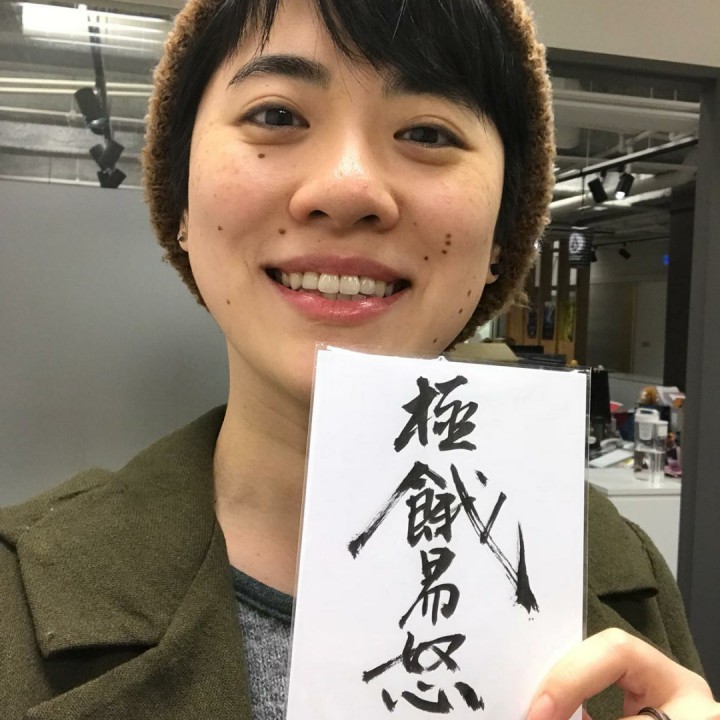 極餓易怒